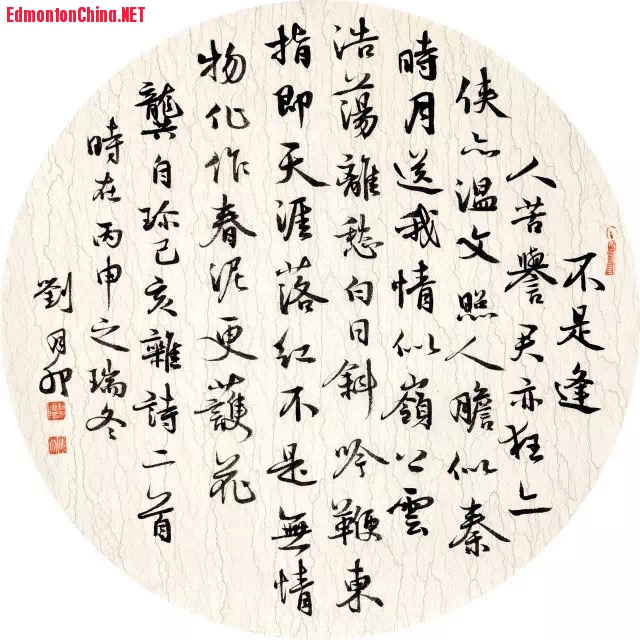 EdmontonChina.NET
不是逢
人苦譽君亦狂亦
俠亦溫文照人膽似秦
時月送我情似嶺上雲
浩蕩離愁白日斜吟鞭東
指即天涯落紅不是無情
物化作春泥更護花
龔自珍己亥雜詩二首
時在丙申之瑞冬
劉月卯